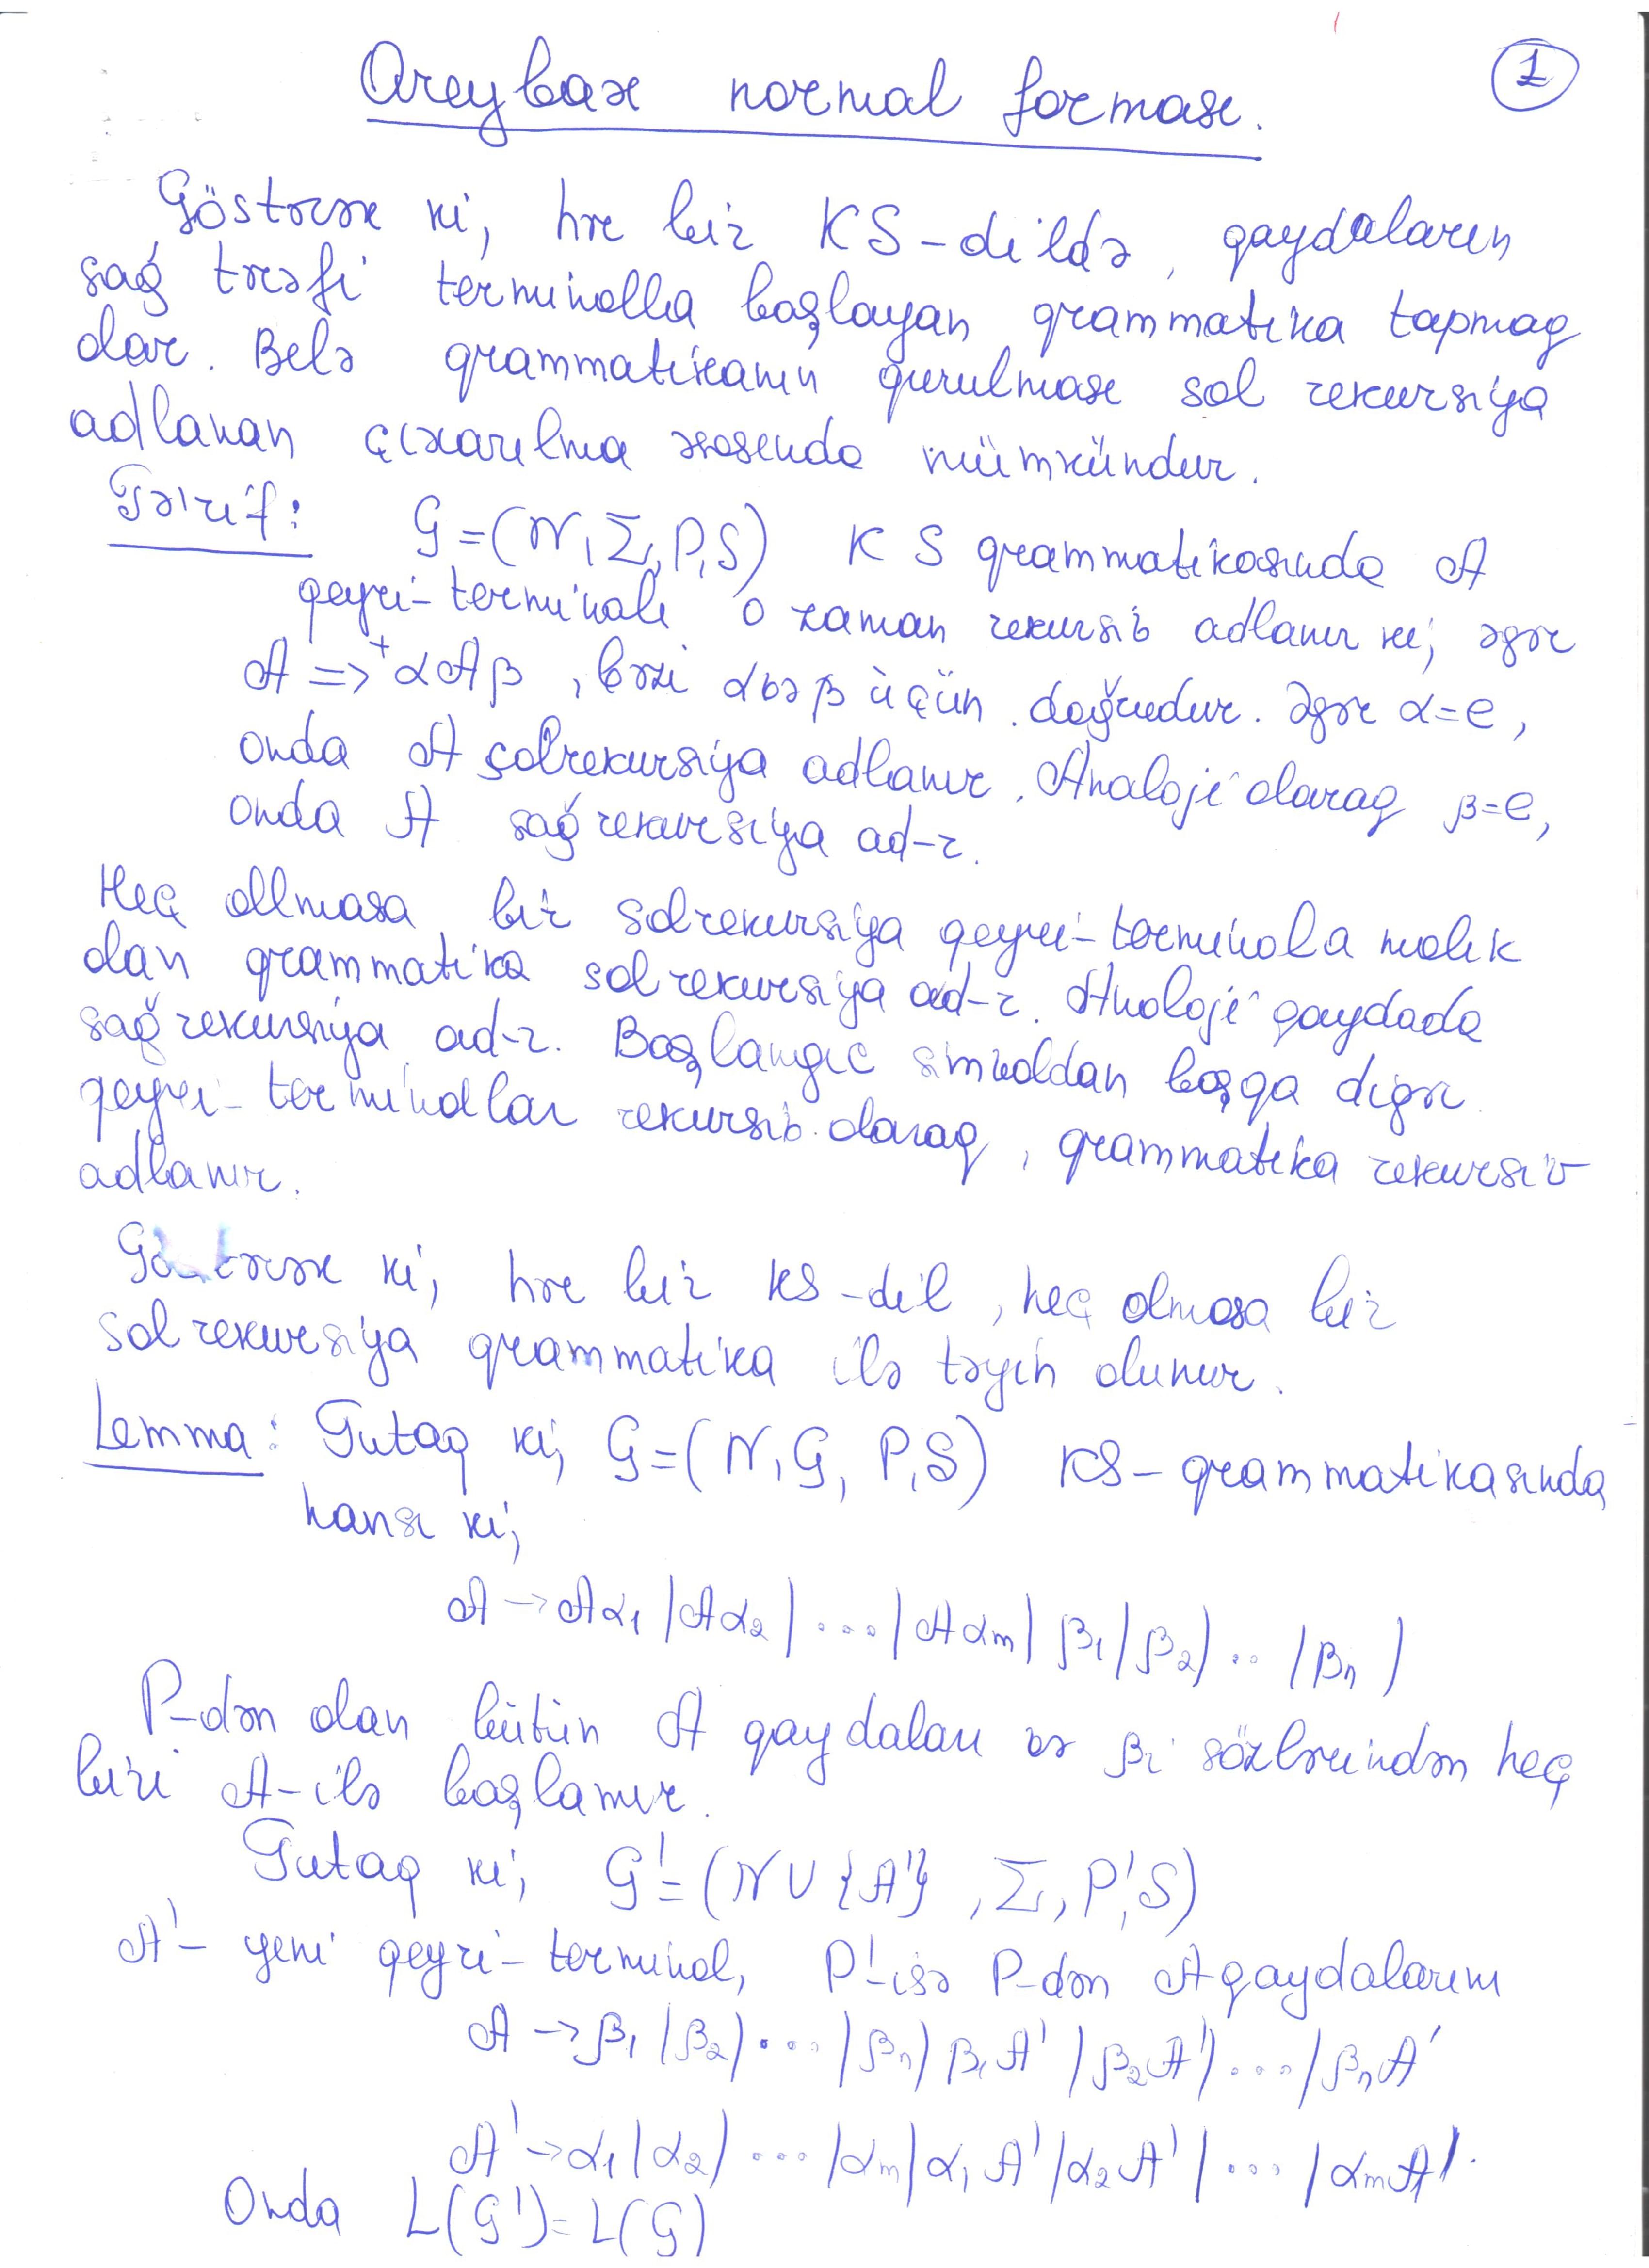 Qreybax normal forması.
1
Göstərək ki, hər bir KS-dildə, qaydaların
sağ tərəfi terminalla başlayan qrammatika tapmaq
olar. Belə qrammatikanın qurulması sol rekursiya
adlanan çıxarılma əsasında mümkündür.
Tə'rif: G=(N,Σ,P,S) KS qrammatikasında A
qeyri-terminalı o zaman rekursiv adlanır ki, əgər
A =>⁺ αAβ, bəzi α və β üçün doğrudur. Əgər α=e,
onda A solrekursiya adlanır. Analoji olaraq β=e,
onda A sağrekursiya ad-r.
Heç ollmasa bir solrekursiya qeyri-terminala malik
olan qrammatika solrekursiya ad-r. Analoji qaydada
sağrekursiya ad-r. Başlanğıc simvoldan başqa digər
qeyri-terminallar rekursiv olaraq, qrammatika rekursiv
adlanır.
Göstərək ki, hər bir KS-dil, heç olmasa bir
solrekursiya qrammatika ilə təyin olunur.
Lemma: Tutaq ki, G=(N,G,P,S) KS-qrammatikasında
hansı ki,
A → Aα₁|Aα₂|...|Aαm|β₁|β₂|..|βn|
P-dən olan bütün A qaydaları və βi sözlərindən heç
biri A-ilə başlamır.
Tutaq ki, G'=(N∪{A'},Σ,P',S)
A'- yeni qeyri-terminal, P'-isə P-dən A qaydalarını
A → β₁|β₂|...|βn|β₁A'|β₂A'|...|βnA'
A' → α₁|α₂|...|αm|α₁A'|α₂A'|...|αmA'.
Onda L(G')=L(G)